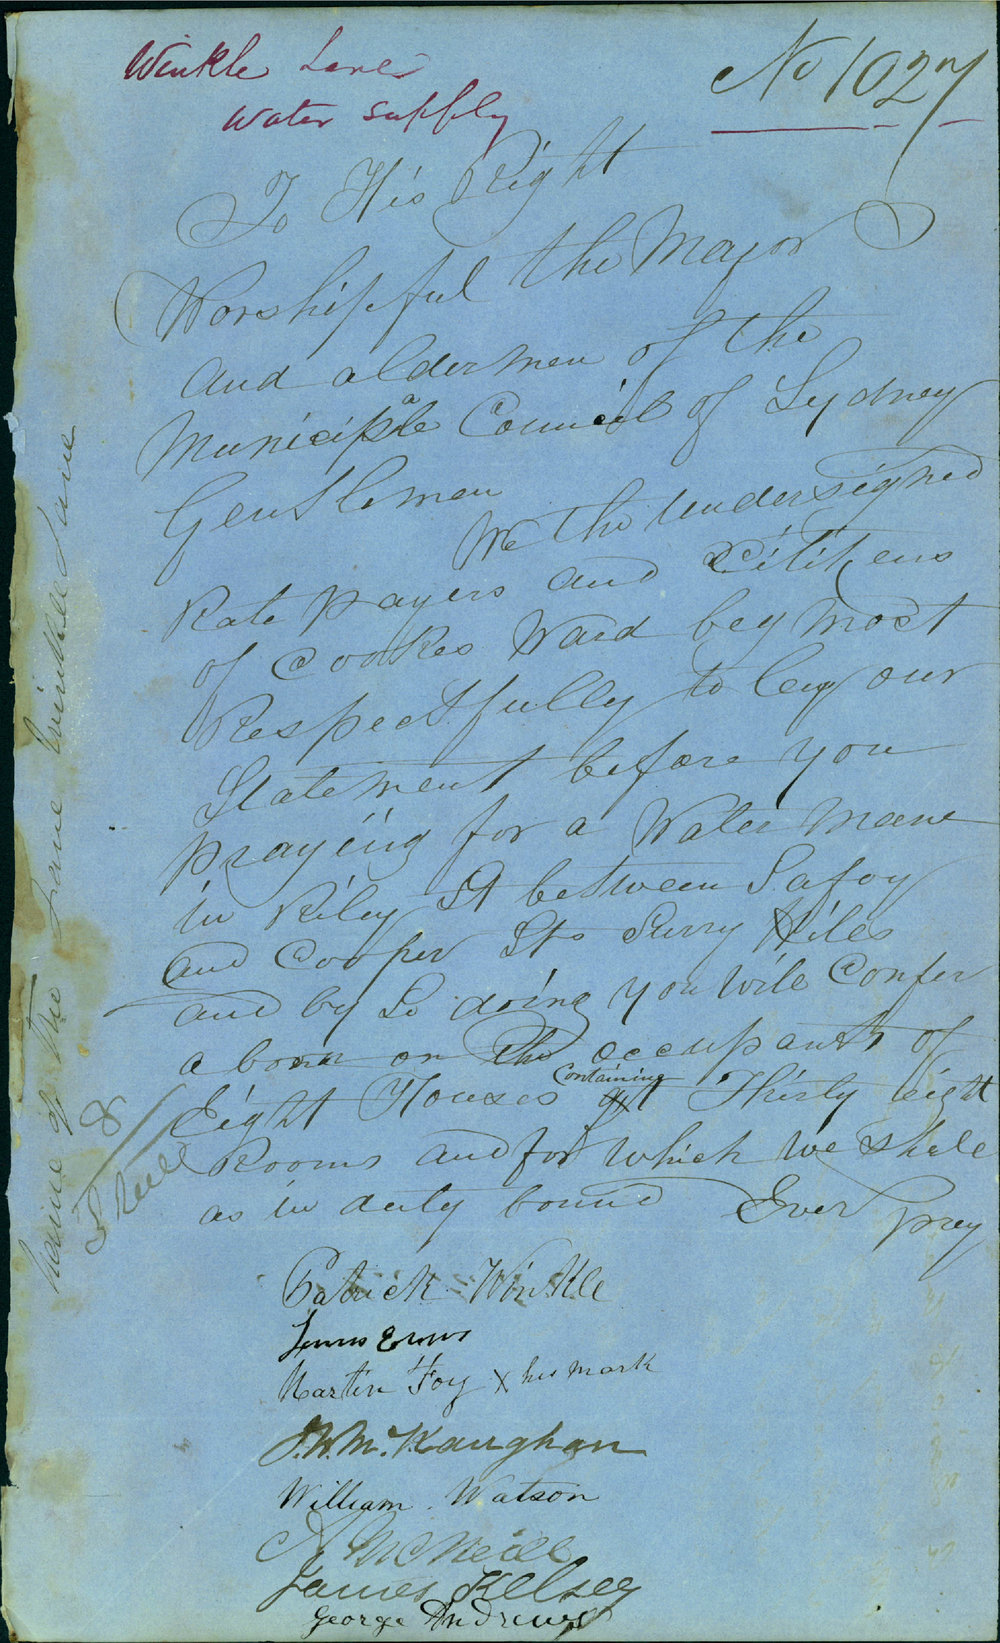 Winkle Lane
Water supply
No 1027
To His Right
Worshipful the Mayor
and aldermen of the
Municipale Council of Sydney
Gentlemen
We the undersigned
Rate payers and Citizens
of Cookes Ward beg most
Respectfully to lay our
Statement before you
praying for a Water Meane
in Riley St between Safoy
and Cooper Sts Surry Hiles
and by So doing you wile Confer
a boon on the occupants of
Eight Houses Containing Thirty eight
Rooms and for which we shale
as in duty bound Ever pray
Patrick Winkle
James
Martin Foy x his mark
J. W. McKaughan
William Watson
McNeill
James Kelsey
George Andrews
name of the Lane Winkle Lane
8